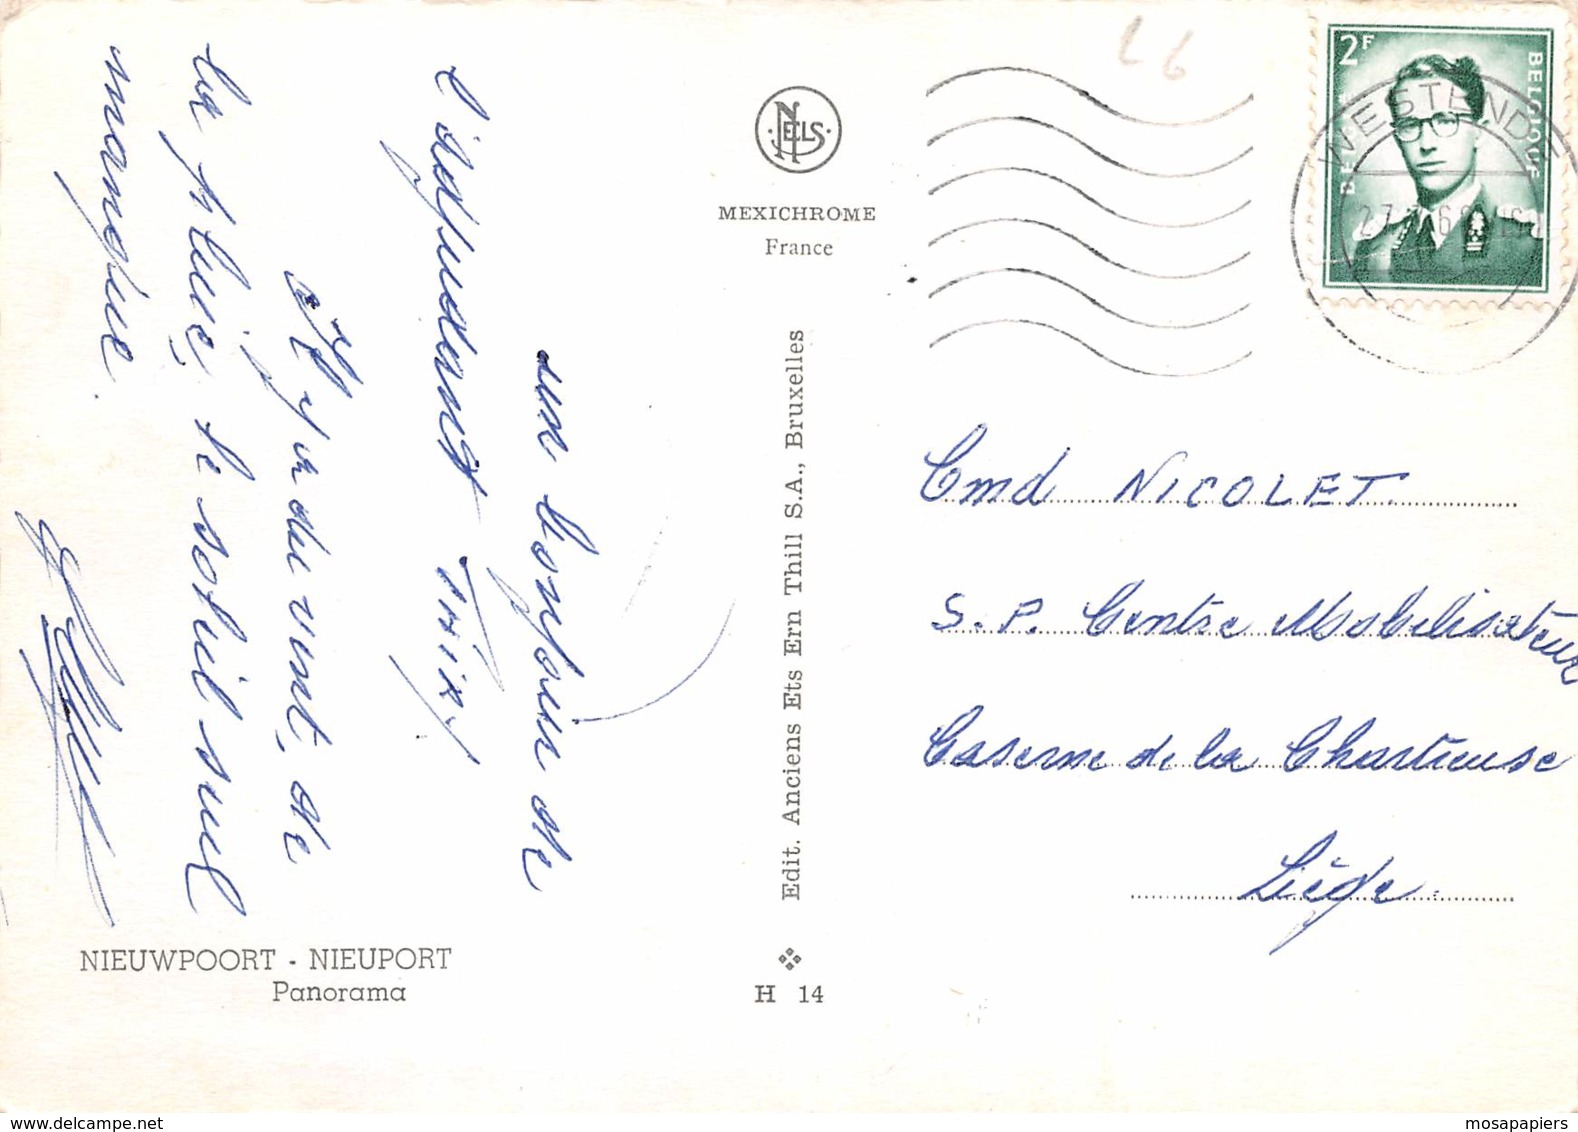 un bonjour de
l'adjudant THIRY
Il y a du vent, de
la pluie, le soleil seul
manque.
NIEUWPOORT - NIEUPORT
Panorama
NELS
MEXICHROME
France
Edit. Anciens Ets Ern Thill S.A., Bruxelles
H 14
L6
2F
BELGIQUE
BELGIE
WESTENDE
Cmd NICOLET
S.P. Centre Mobilisateur
Caserne de la Chartreuse
Liège
mosapapiers